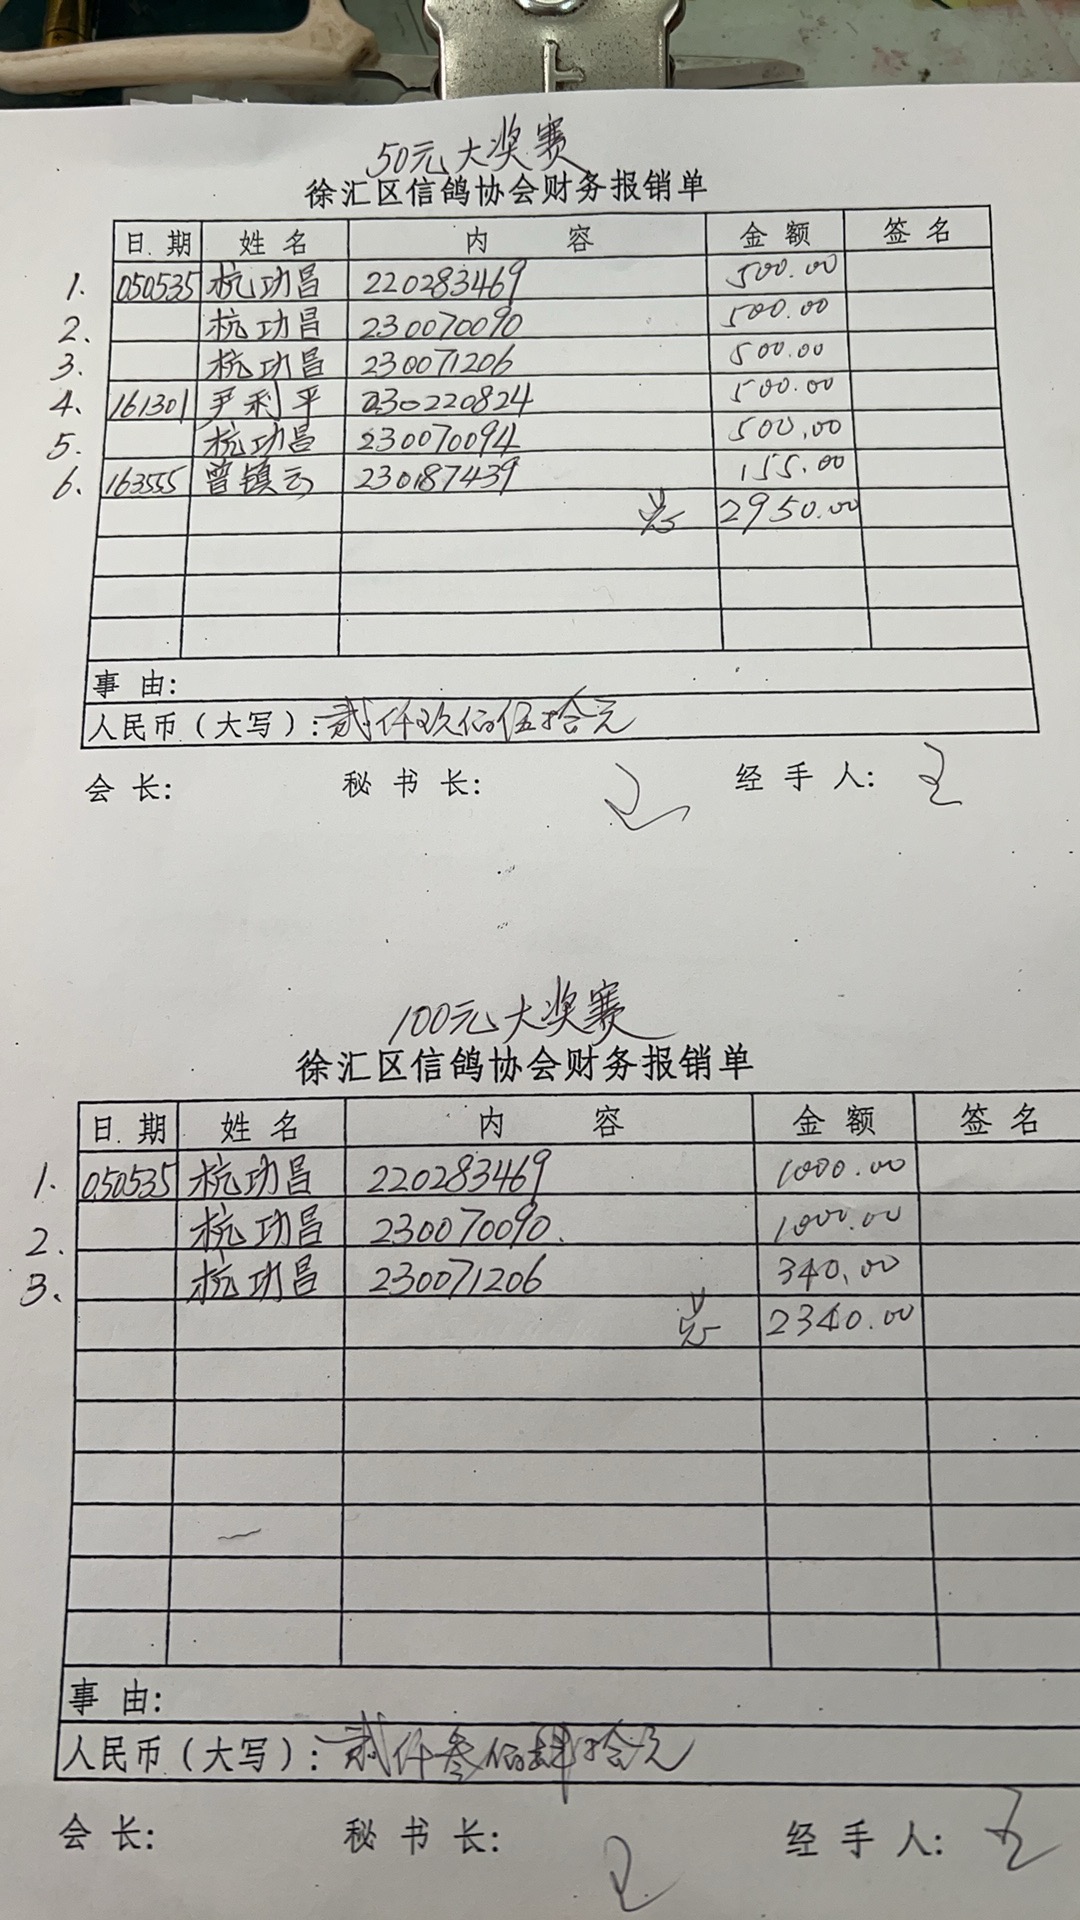 50元大奖赛
徐汇区信鸽协会财务报销单
日期 姓名 内 容 金额 签名
1. 050535 杭功昌 220283469 500.00
2. 杭功昌 230070090 500.00
3. 杭功昌 230071206 500.00
4. 161301 尹利平 230220824 500.00
5. 杭功昌 230070094 500.00
6. 163555 曾镇云 230187439 155.00
2950.00
事 由:
人民币（大写）: 贰仟玖佰伍拾元
会 长: 秘 书 长: 经 手 人:
100元大奖赛
徐汇区信鸽协会财务报销单
日期 姓名 内 容 金额 签名
1. 050535 杭功昌 220283469 1000.00
2. 杭功昌 230070090. 1000.00
3. 杭功昌 230071206 340.00
2340.00
事 由:
人民币（大写）: 贰仟叁佰肆拾元
会 长: 秘 书 长: 经 手 人: